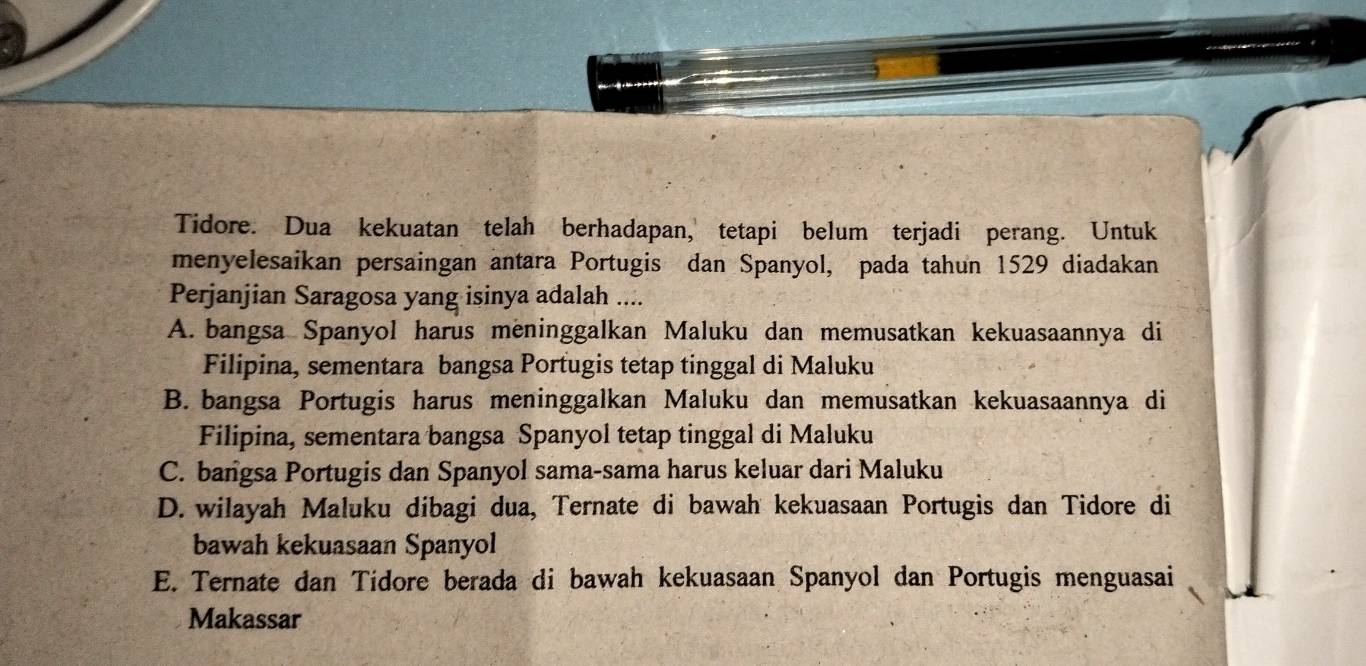 Tidore. Dua kekuatan telah berhadapan, tetapi belum terjadi perang. Untuk
menyelesaikan persaingan antara Portugis dan Spanyol, pada tahun 1529 diadakan
Perjanjian Saragosa yang isinya adalah ....
A. bangsa Spanyol harus meninggalkan Maluku dan memusatkan kekuasaannya di
Filipina, sementara bangsa Portugis tetap tinggal di Maluku
B. bangsa Portugis harus meninggalkan Maluku dan memusatkan kekuasaannya di
Filipina, sementara bangsa Spanyol tetap tinggal di Maluku
C. bangsa Portugis dan Spanyol sama-sama harus keluar dari Maluku
D. wilayah Maluku dibagi dua, Ternate di bawah kekuasaan Portugis dan Tidore di
bawah kekuasaan Spanyol
E. Ternate dan Tidore berada di bawah kekuasaan Spanyol dan Portugis menguasai
Makassar